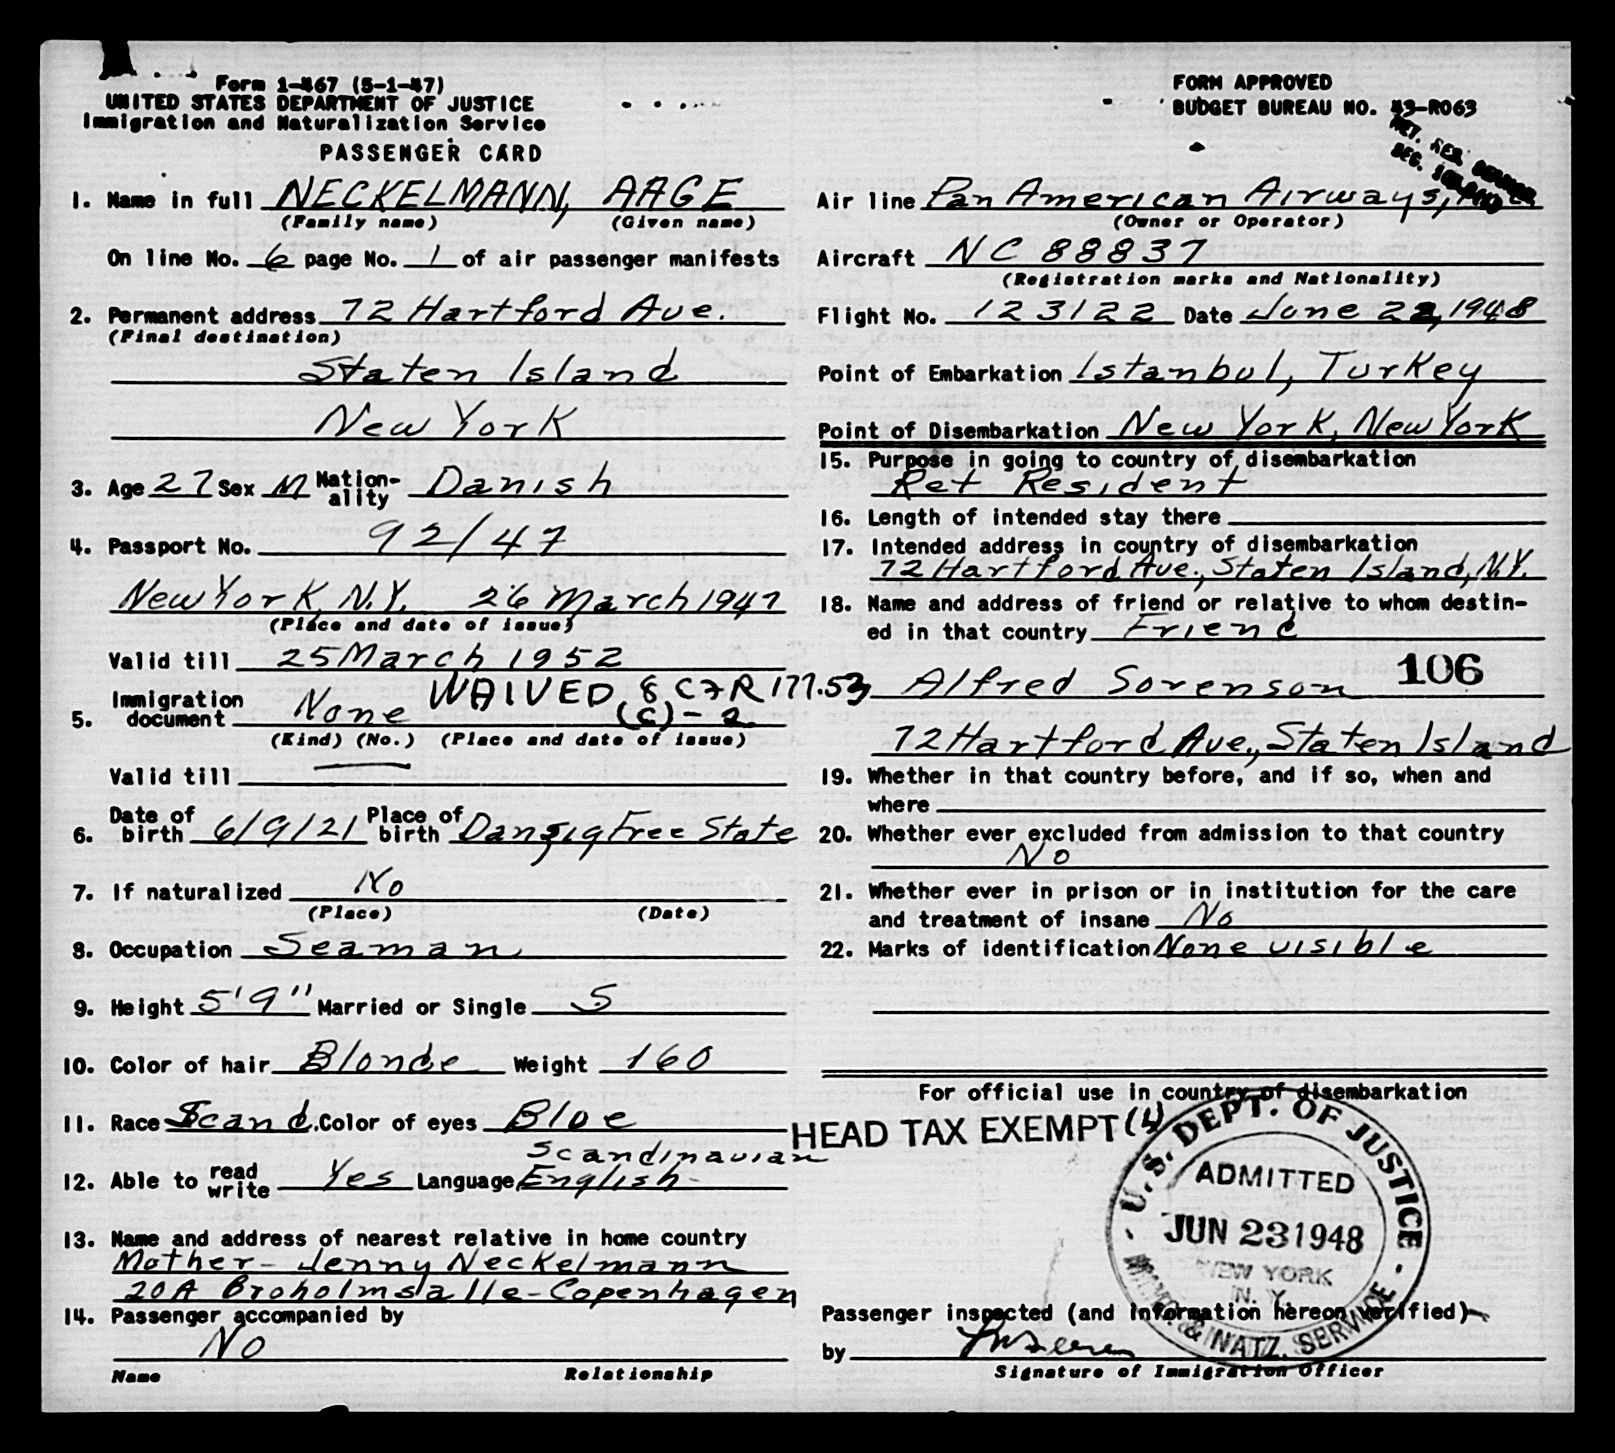 Form I-467 (5-1-47)
UNITED STATES DEPARTMENT OF JUSTICE
Immigration and Naturalization Service
PASSENGER CARD
1. Name in full NECKELMANN, AAGE
(Family name) (Given name)
On line No. 6 page No. 1 of air passenger manifests
2. Permanent address 72 Hartford Ave.
(Final destination)
Staten Island
New York
3. Age 27 Sex M Nation-ality Danish
4. Passport No. 92/47
New York, N.Y. 26 March 1947
(Place and date of issue)
Valid till 25 March 1952
5. Immigration document None WAIVED 8 CFR 177.53
(C)-2
(Kind) (No.) (Place and date of issue)
Valid till
6. Date of birth 6/9/21 Place of birth Danzig Free State
7. If naturalized No
(Place) (Date)
8. Occupation Seaman
9. Height 5'9" Married or Single S
10. Color of hair Blonde Weight 160
11. Race Scand. Color of eyes Blue
Scandinavian
12. Able to read write Yes Language English-
13. Name and address of nearest relative in home country
Mother - Jenny Neckelmann
20A Broholmsalle - Copenhagen
14. Passenger accompanied by
No
Name Relationship
FORM APPROVED
BUDGET BUREAU NO. 43-R063
Air line Pan American Airways,
(Owner or Operator)
Aircraft NC 88837
(Registration marks and Nationality)
Flight No. 123122 Date June 22, 1948
Point of Embarkation Istanbul, Turkey
Point of Disembarkation New York, New York
15. Purpose in going to country of disembarkation
Ret Resident
16. Length of intended stay there
17. Intended address in country of disembarkation
72 Hartford Ave., Staten Island, N.Y.
18. Name and address of friend or relative to whom destin-
ed in that country Friend
Alfred Sorenson 106
72 Hartford Ave., Staten Island
19. Whether in that country before, and if so, when and
where
20. Whether ever excluded from admission to that country
No
21. Whether ever in prison or in institution for the care
and treatment of insane No
22. Marks of identification None visible
For official use in country of disembarkation
HEAD TAX EXEMPT
U.S. DEPT. OF JUSTICE
ADMITTED
JUN 23 1948
NEW YORK
N. Y.
IMMIG. & NATZ. SERVICE
Passenger inspected (and information hereon verified)
by
Signature of Immigration Officer